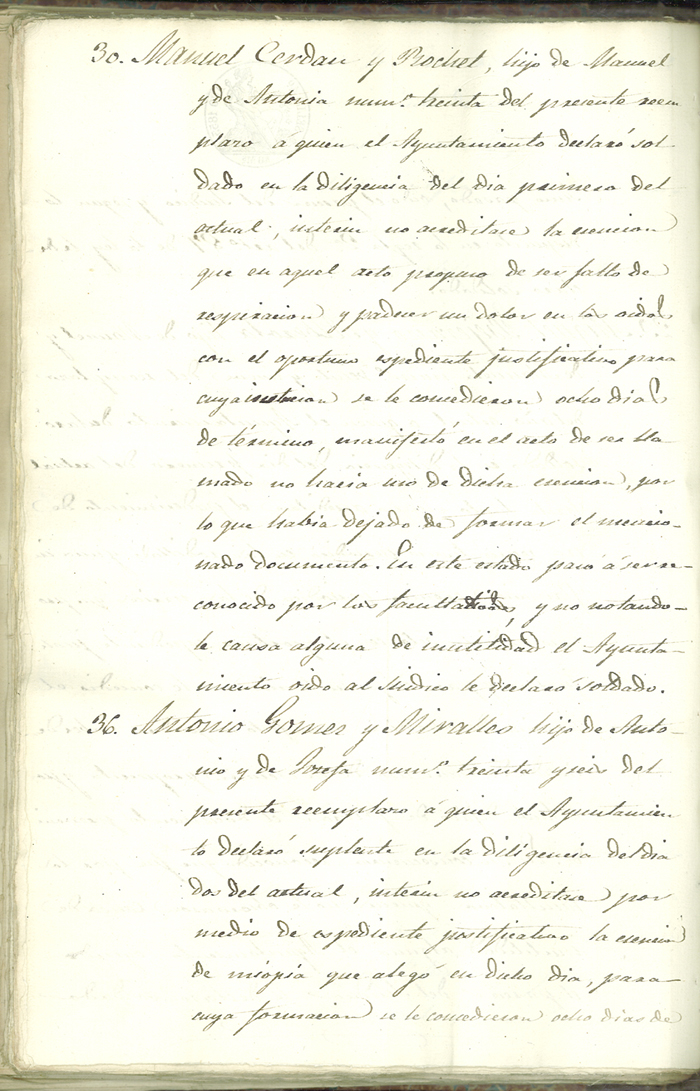 30. Manuel Cerdan y Rochel, hijo de Manuel
y de Antonia num.º treinta del presente reem
plazo á quien el Ayuntamiento declaró sol
dado en la diligencia del dia primero del
actual, interin no acreditase la esencion
que en aquel acto propuso de ser falto de
respiracion y padecer un dolor en los oidos
con el oportuno espediente justificativo para
cuya se le concedieron ocho dias
de término, manifestó en el acto de ser lla
mado no hacia uso de dicha esencion, por
lo que habia dejado de formar el mencio
nado documento. En este estado pasó á ser re-
conocido por los facultativos, y no notando-
le causa alguna de inutilidad el Ayunta-
miento oido al Sindico le declaró soldado.
36. Antonio Gomez y Miralles hijo de Anto-
nio y de Josefa num.º treinta y seis del
presente reemplazo á quien el Ayuntamien
to declaró suplente en la diligencia del dia
dos del actual, interin no acreditase por
medio de espediente justificativo la esencion
de miopia que alegó en dicho dia, para
cuya formacion se le concedieron ocho dias de